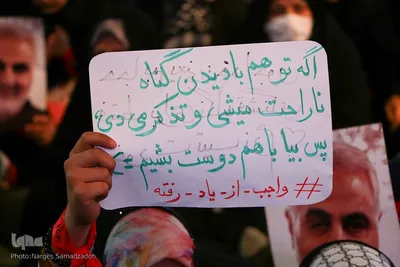 اگه تو هم با دیدن گناه
ناراحت میشی و تذکر می دی
پس بیا با هم دوست بشیم
#واجب-از-یاد-رفته
iqna
Photo:Narges Samadzadeh